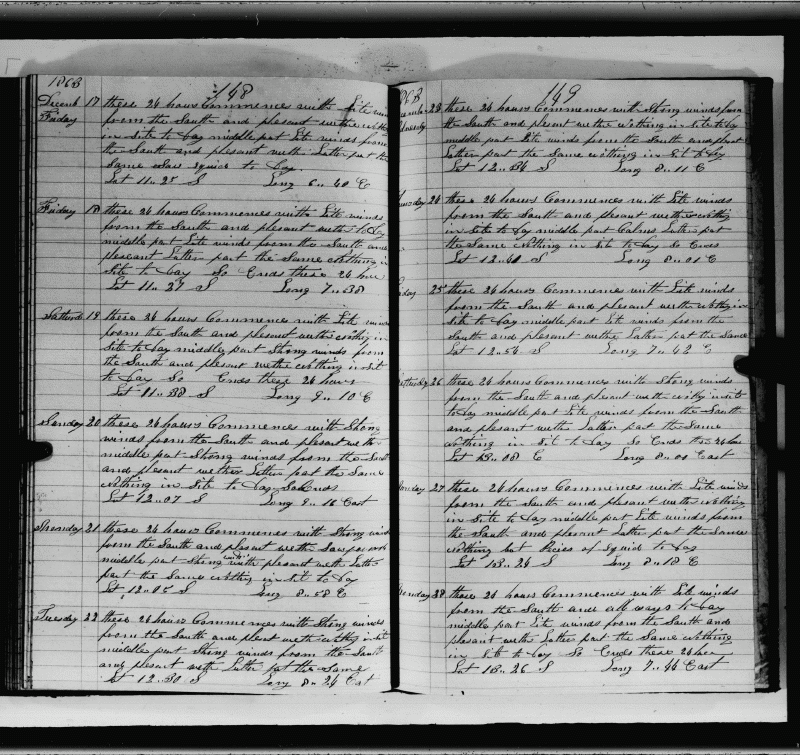 1868
148
Decemb 17 these 24 hours Commences with Lite winds
Friday from the South and plesant wethe nothing
in Site to Day middle part Lite winds from
the South and plesant with Latter part the
Same Saw Squid to Day.
Lat 11 .. 25 S Long 6 .. 40 E
Friday 18 these 24 hours Commences with Lite winds
from the South and plesant wethe to Day
middle part Lite winds from the South and
plesant Latter part the Same nothing in
Site to Day So Ends these 24 hour
Lat 11 .. 27 S Long 7 .. 38
Satturd 19 these 24 hours Commences with Lite winds
from the South and plesant wethe nothing in
Site to Day middle part Strong winds from
the South and plesant wethe nothing in Sit
to Day So Ends these 24 hours
Lat 11 .. 38 S Long 9 .. 10 E
Sunday 20 these 24 hours Commences with Strong
winds from the South and plesant wethe
middle part Strong winds from the South
and plesant wethe Latter part the Same
nothing in Site to Day So Ends
Lat 12 .. 07 S Long 9 .. 16 East
Monday 21 these 24 hours Commences with Strong wind
from the South and plesant wethe Saw
middle part Strong winds with plesant wethe Latter
part the Same nothing in Sit to Day
Lat 12 .. 05 S Long 8 .. 58 E
Tuesday 22 these 24 hours Commences with Strong winds
from the South and plent wethe nothing in Site
middle part Strong winds from the South
and plesant wethe Latter part the Same
Lat 12 .. 30 S Long 8 .. 24 East
1868
149
23 these 24 hours Commences with Strong winds from
the South and plesant wethe nothing in Site to Day
middle part Lite winds from the South and plesant
Latter part the Same nothing in Sit to Day
Lat 12 .. 34 S Long 8 .. 11 E
24 these 24 hours Commences with Lite winds
from the South and plesant wethe nothing
in Site to Day middle part Calms Latter part
the Same nothing in Site to Day So Ends
Lat 12 .. 40 S Long 8 .. 01 E
25 these 24 hours Commences with Lite winds
from the South and plesant wethe nothing in
Site to Day middle part Lite winds from the
South and plesant wethe Latter part the Same
Lat 12 .. 54 S Long 7 .. 42 E
26 these 24 hours Commences with Strong winds
from the South and plesant wethe nothing in Site
to Day middle part Lite winds from the South
and plesant wethe Latter part the Same
nothing in Sit to Day So Ends the 24 hour
Lat 13 .. 08 E Long 8 .. 00 East
27 these 24 hours Commences with Lite winds
from the South and plesant wethe nothing
in Site to Day middle part Lite winds from
the South and plesant Latter part the Same
nothing but Peices of Squid to Day
Lat 13 .. 24 S Long 8 .. 18 E
28 these 24 hours Commences with Lite winds
from the South and all ways to Day
middle part Lite winds from the South and
plesant wethe Latter part the Same nothing
in Site to Day So Ends these 24 hour
Lat 13 .. 26 S Long 7 .. 46 East